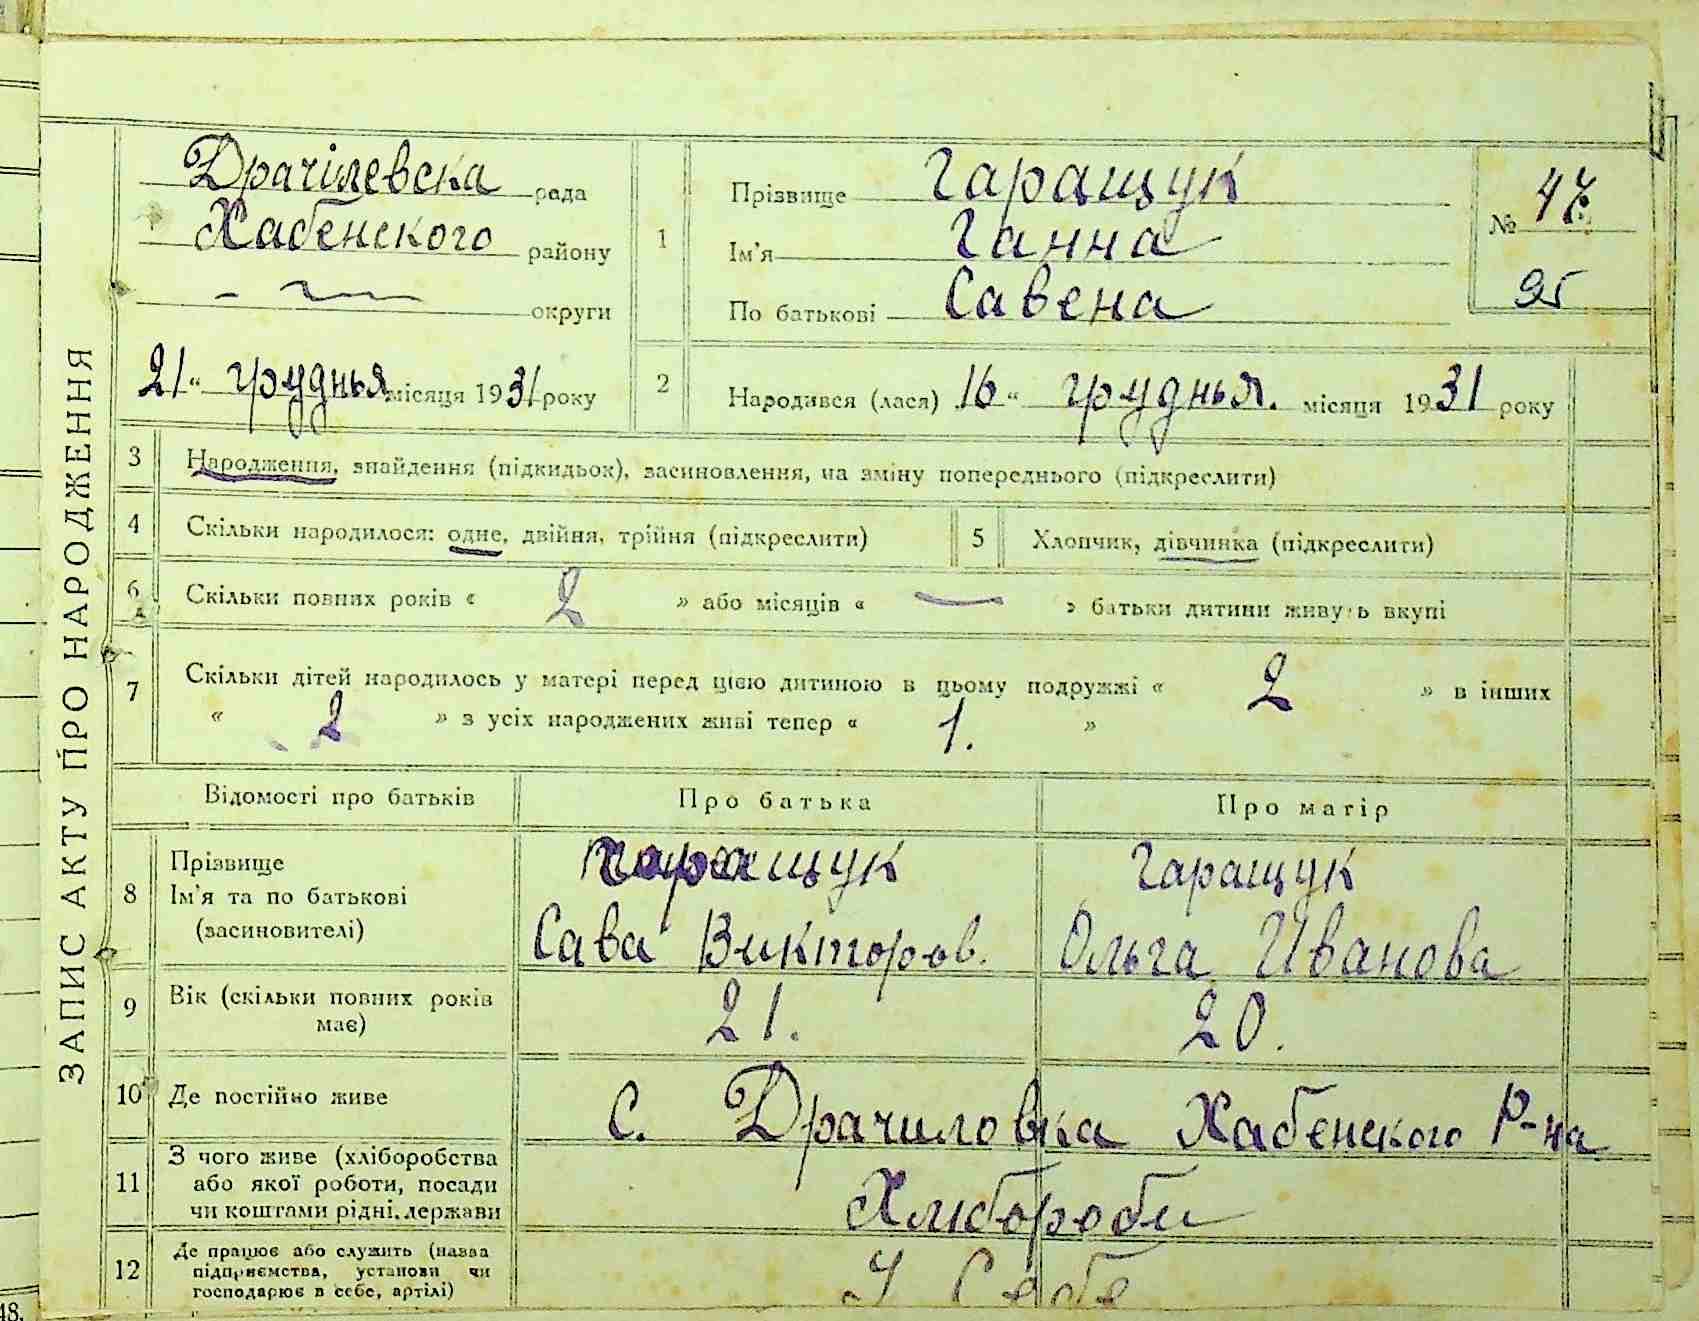 ЗАПИС АКТУ ПРО НАРОДЖЕННЯ
Драчілевска рада
Хабенского району
округи
21 " груднья місяця 1931 року
1
Прізвище Гаращук
Ім'я Ганна
По батькові Савена
№ 47
95
2 Народився (лася) 16 " груднья. місяця 1931 року
3 Народження, знайдення (підкидьок), засиновлення, на зміну попереднього (підкреслити)
4 Скільки народилося: одне, двійня, трійня (підкреслити)
5 Хлопчик, дівчинка (підкреслити)
6 Скільки повних років « 2 » або місяців « — » батьки дитини живуть вкупі
7 Скільки дітей народилось у матері перед цією дитиною в цьому подружжі « 2 » в інших
« 2 » з усіх народжених живі тепер « 1. »
Відомості про батьків Про батька Про матір
8 Прізвище Гаращук Гаращук
Ім'я та по батькові
(засиновителі) Сава Викторов. Ольга Иванова
9 Вік (скільки повних років 21. 20.
має)
10 Де постійно живе С. Драчиловка Хабенского Р-на
11 З чого живе (хліборобства
або якої роботи, посади Хлібороби
чи коштами рідні, держави
12 Де працює або служить (назва
підприємства, установи чи У Себе
господарює в себе, артілі)
48.